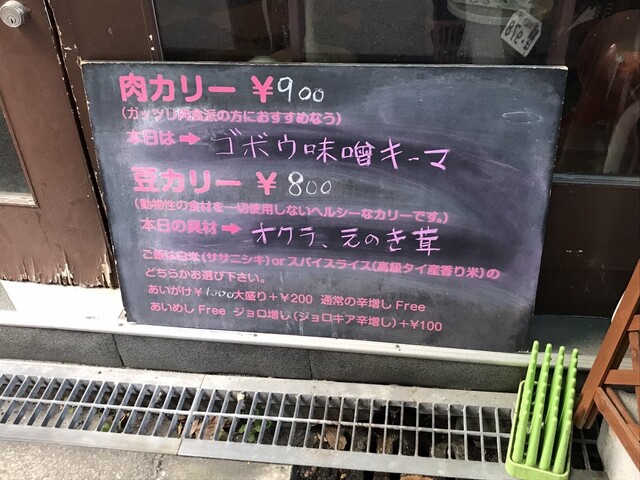 肉カリー ¥900
(ガッツリ肉食派の方におすすめなう)
本日は➡ ゴボウ味噌キーマ
豆カリー ¥800
(動物性の食材を一切使用しないヘルシーなカリーです。)
本日の具材➡ オクラ、えのき茸
ご飯は白米(ササニシキ)or スパイスライス(高級タイ産香り米)の
どちらかお選び下さい。
あいがけ¥1000 大盛り+¥200 通常の辛増し Free
あいめし Free ジョロ増し(ジョロキア辛増し)+¥100